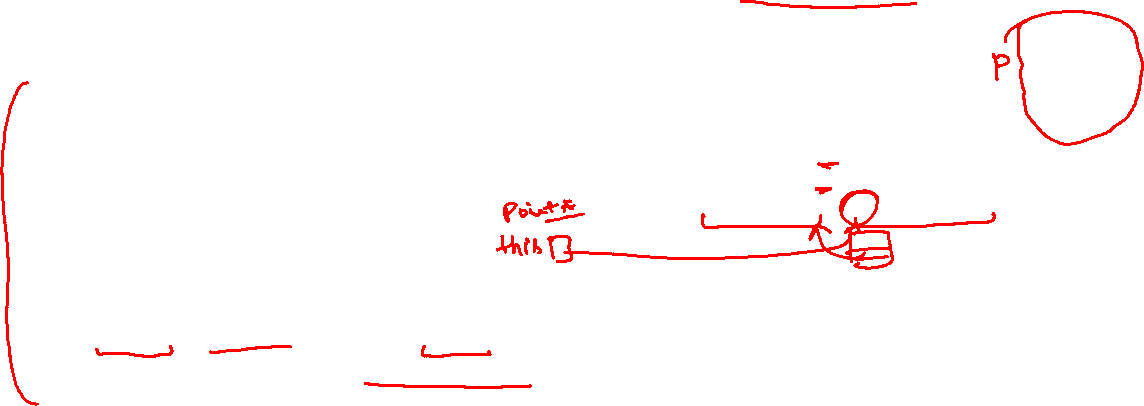 P
Point*
this